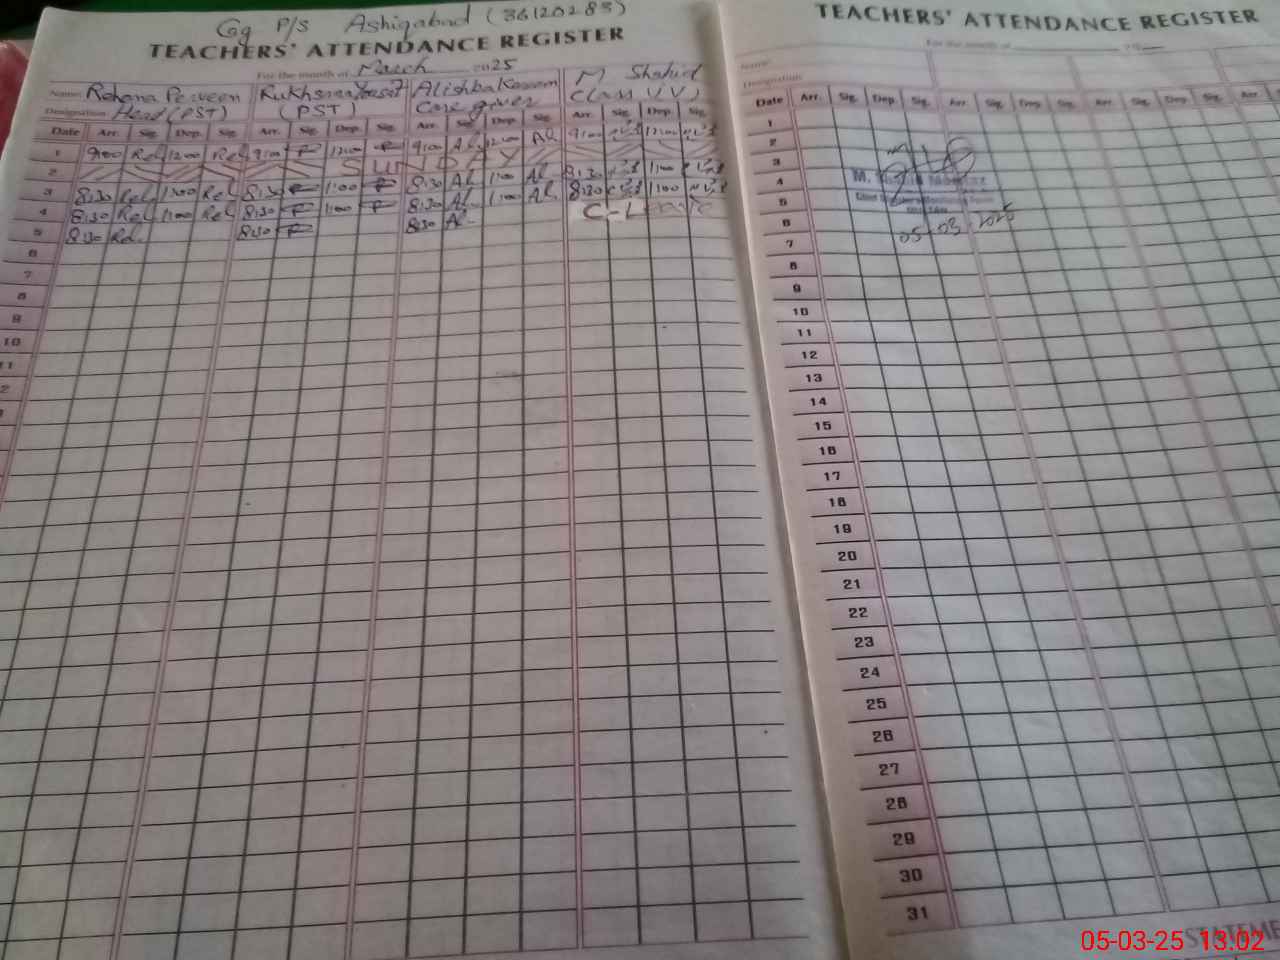 Gg P/S Ashiqabad (36120283)
TEACHERS' ATTENDANCE REGISTER
For the month of March 2025
Name: Rehana Perveen Rukhsana Alishba M Shahid
Designation Head (PST) (PST) Care giver Class IV
Date Arr. Sig. Dep. Sig. Arr. Sig. Dep. Sig. Arr. Sig. Dep. Sig. Arr. Sig. Dep. Sig.
1 9:00 Reh 12:00 Reh 9:00 12:00 9:00 Al 12:00 Al 9:00 12:00
2 SUNDAY
3 8:30 Reh 1:00 Reh 8:30 1:00 8:30 Al 1:00 Al 8:30 1:00
4 8:30 Reh 1:00 Reh 8:30 1:00 8:30 Al 1:00 Al 8:30 1:00
5 8:30 Reh 8:30 8:30 Al C-Leave
6
7
8
9
10
11
2
TEACHERS' ATTENDANCE REGISTER
For the month of
Name:
Designation
Date Arr. Sig. Dep. Sig. Arr. Sig. Dep. Sig. Arr. Sig. Dep. Sig. Arr.
1
2
3
4
5
6
05-03-2025
7
8
9
10
11
12
13
14
15
16
17
18
19
20
21
22
23
24
25
26
27
28
29
30
31
STATEME
05-03-25 13.02